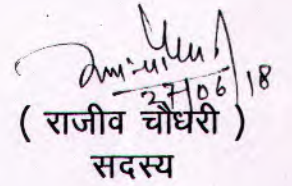 27/06/18
( राजीव चौधरी )
सदस्य